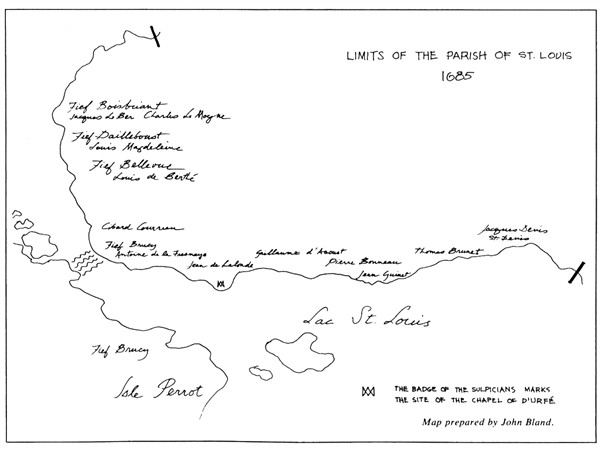 LIMITS OF THE PARISH OF ST. LOUIS
1685
Fief Boisbriant
Jacques Le Ber Charles Le Moyne
Fief Dailleboust
Louis Magdeleine
Fief Bellevue
Louis de Berthé
Jacques Denis
St. Denis
Fief Brucy
Antoine de la Fresnaye
Jean de Lalonde
Guillaume d'Aoust
Pierre Bonneau
Jean Guinet
Thomas Brunet
Lac St. Louis
Fief Brucy
Isle Perrot
THE BADGE OF THE SULPICIANS MARKS
THE SITE OF THE CHAPEL OF D'URFÉ.
Map prepared by John Bland.